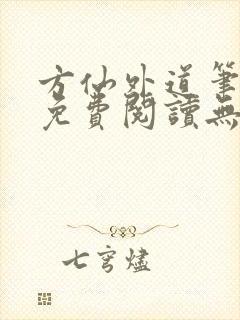 方仙外道筆
免費閱讀無
七穹燼